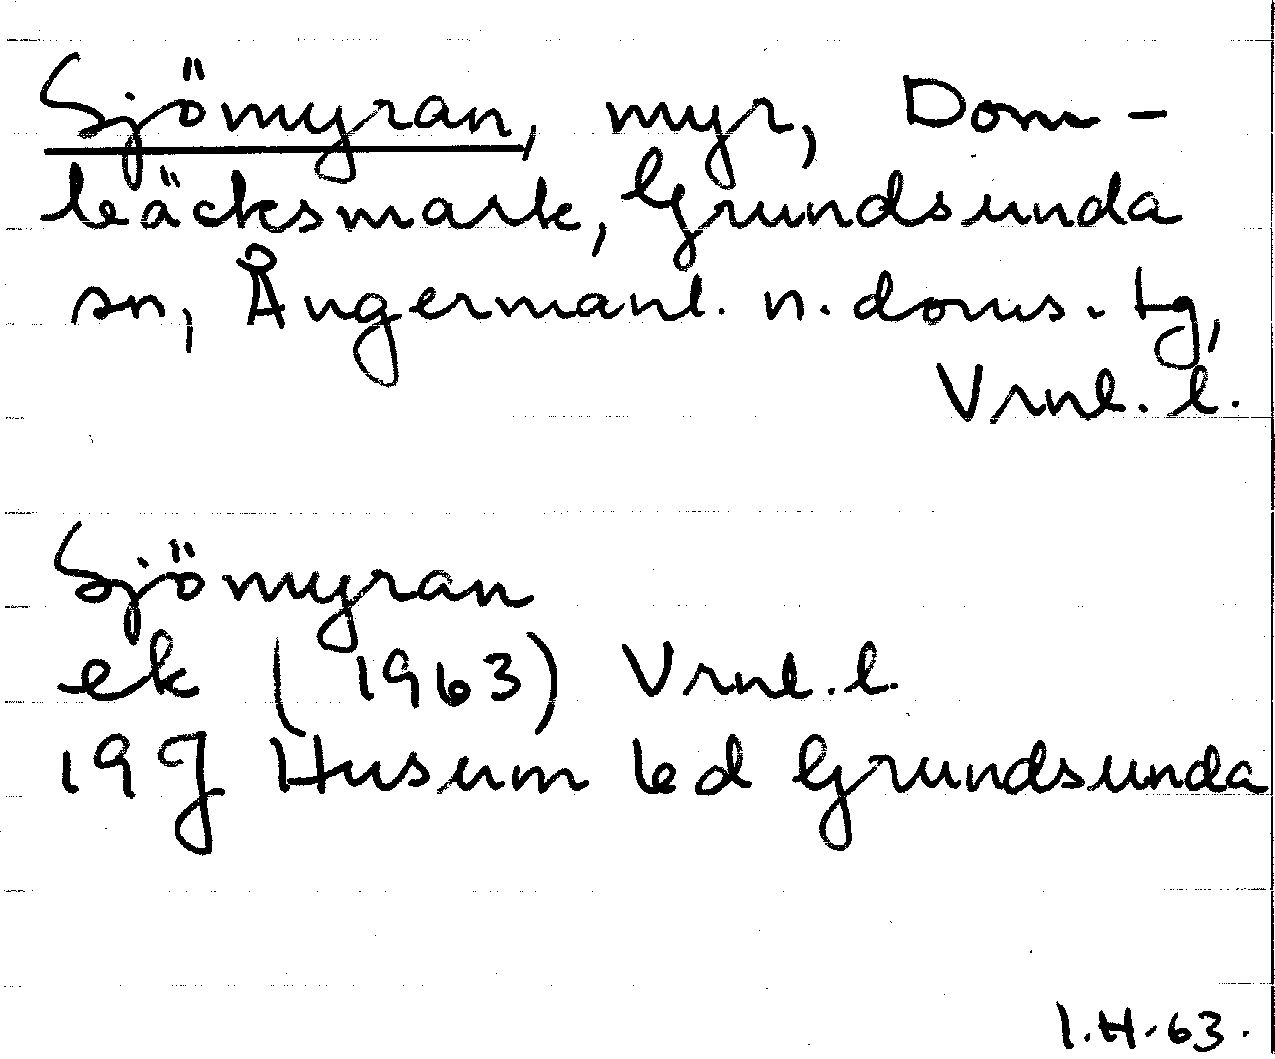 Sjömyran, myr, Dom-
bäcksmark, Grundsunda
sn, Ångermanl. n. doms. tg,
Vrnl. l.
Sjömyran
ek (1963) Vrnl. l.
19J Husum bd Grundsunda
I.H. 63.